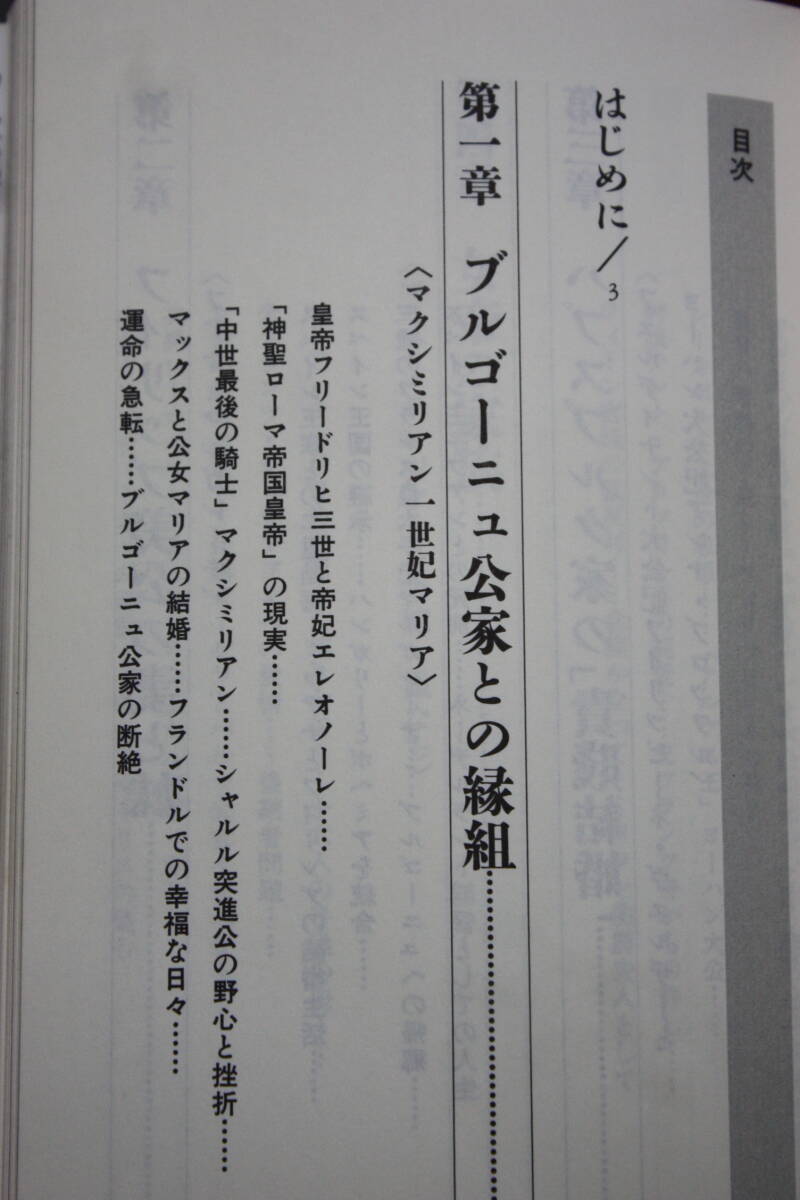 目次
はじめに/3
第一章 ブルゴーニュ公家との縁組……………………
〈マクシミリアン一世妃マリア〉
皇帝フリードリヒ三世と帝妃エレオノーレ……
「神聖ローマ帝国皇帝」の現実……
「中世最後の騎士」マクシミリアン……シャルル突進公の野心と挫折……
マックスと公女マリアの結婚……フランドルでの幸福な日々……
運命の急転……ブルゴーニュ公家の断絶